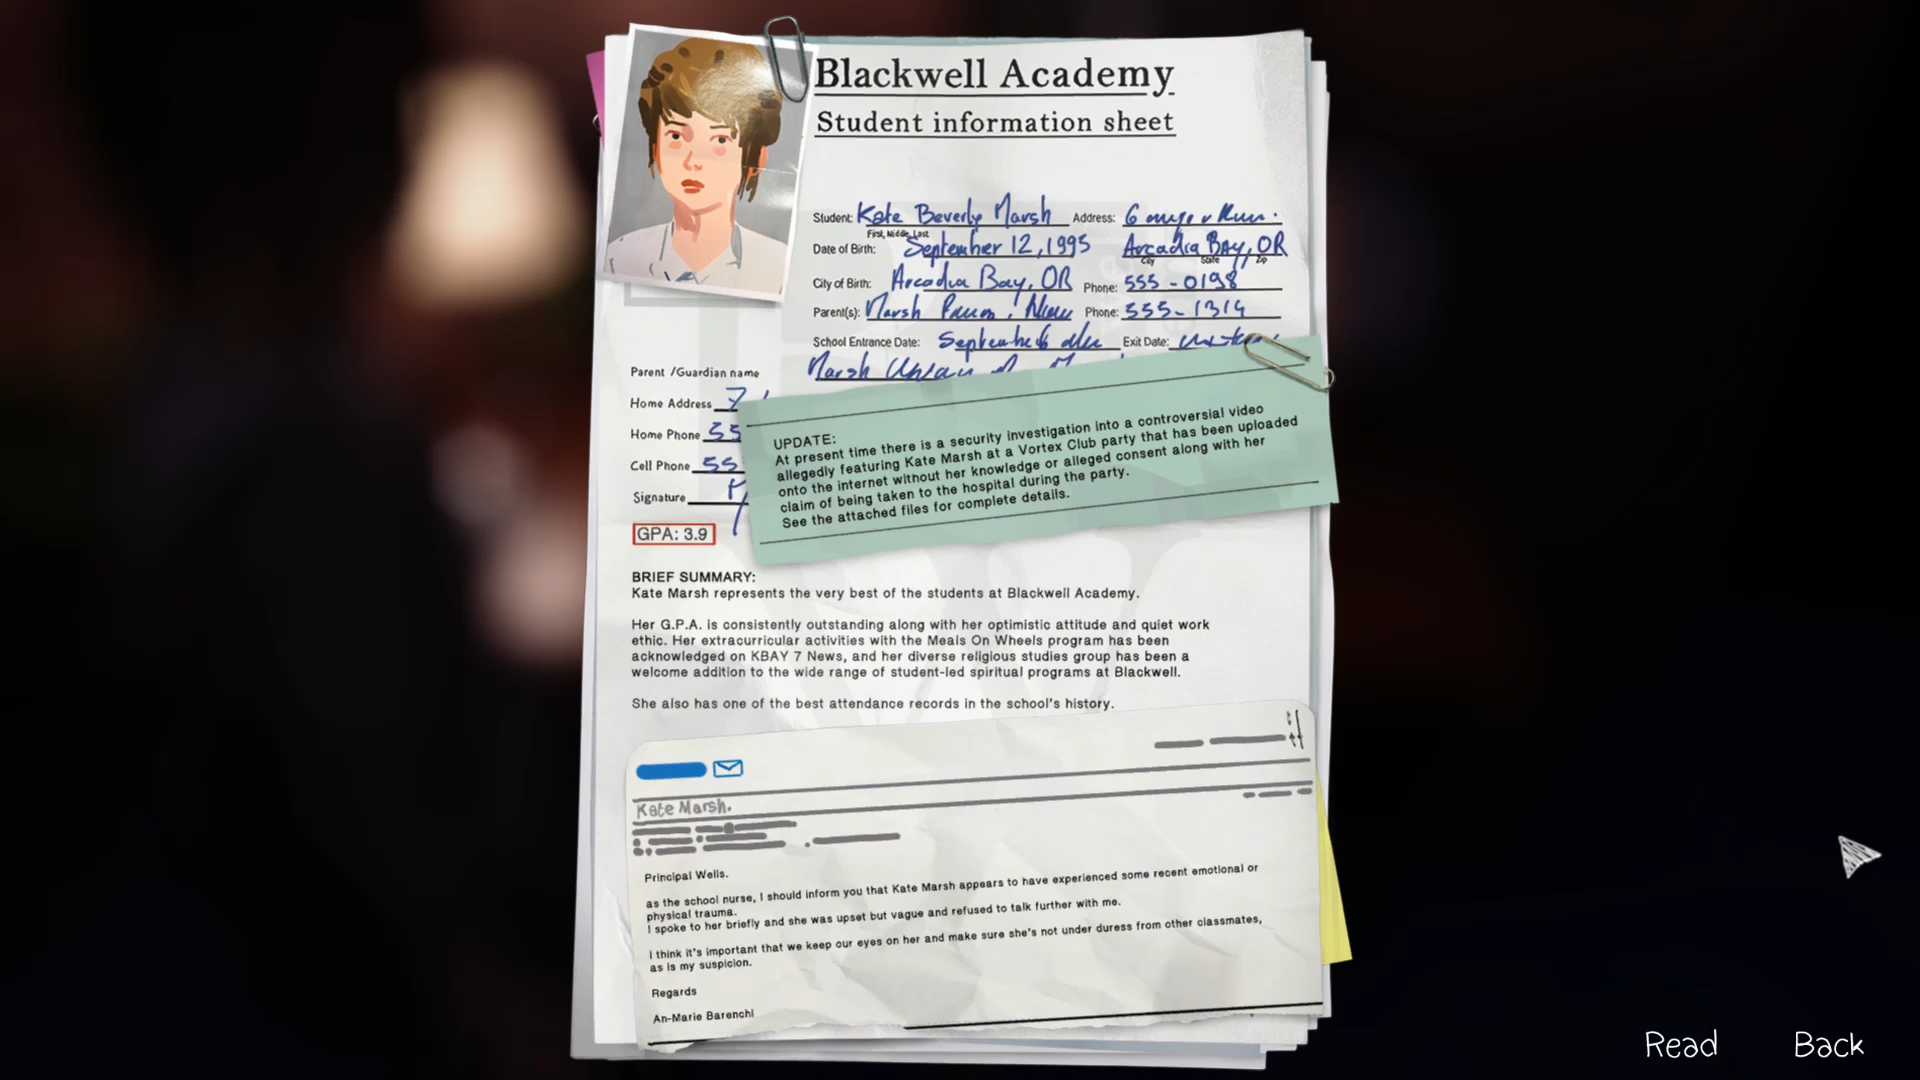 Blackwell Academy
Student information sheet
Student: Kate Beverly Marsh Address:
First, Middle, Last
Date of Birth: September 12, 1995 Arcadia Bay, OR
City State Zip
City of Birth: Arcadia Bay, OR Phone: 555-0198
Parent(s): Marsh Phone: 555-1314
School Entrance Date: Exit Date:
Parent /Guardian name Marsh
Home Address 7
Home Phone 55
Cell Phone 55
Signature
GPA: 3.9
UPDATE:
At present time there is a security investigation into a controversial video
allegedly featuring Kate Marsh at a Vortex Club party that has been uploaded
onto the internet without her knowledge or alleged consent along with her
claim of being taken to the hospital during the party.
See the attached files for complete details.
BRIEF SUMMARY:
Kate Marsh represents the very best of the students at Blackwell Academy.
Her G.P.A. is consistently outstanding along with her optimistic attitude and quiet work
ethic. Her extracurricular activities with the Meals On Wheels program has been
acknowledged on KBAY 7 News, and her diverse religious studies group has been a
welcome addition to the wide range of student-led spiritual programs at Blackwell.
She also has one of the best attendance records in the school's history.
Kate Marsh.
Principal Wells.
as the school nurse, I should inform you that Kate Marsh appears to have experienced some recent emotional or
physical trauma.
I spoke to her briefly and she was upset but vague and refused to talk further with me.
I think it's important that we keep our eyes on her and make sure she's not under duress from other classmates,
as is my suspicion.
Regards
An-Marie Barenchi
Read Back